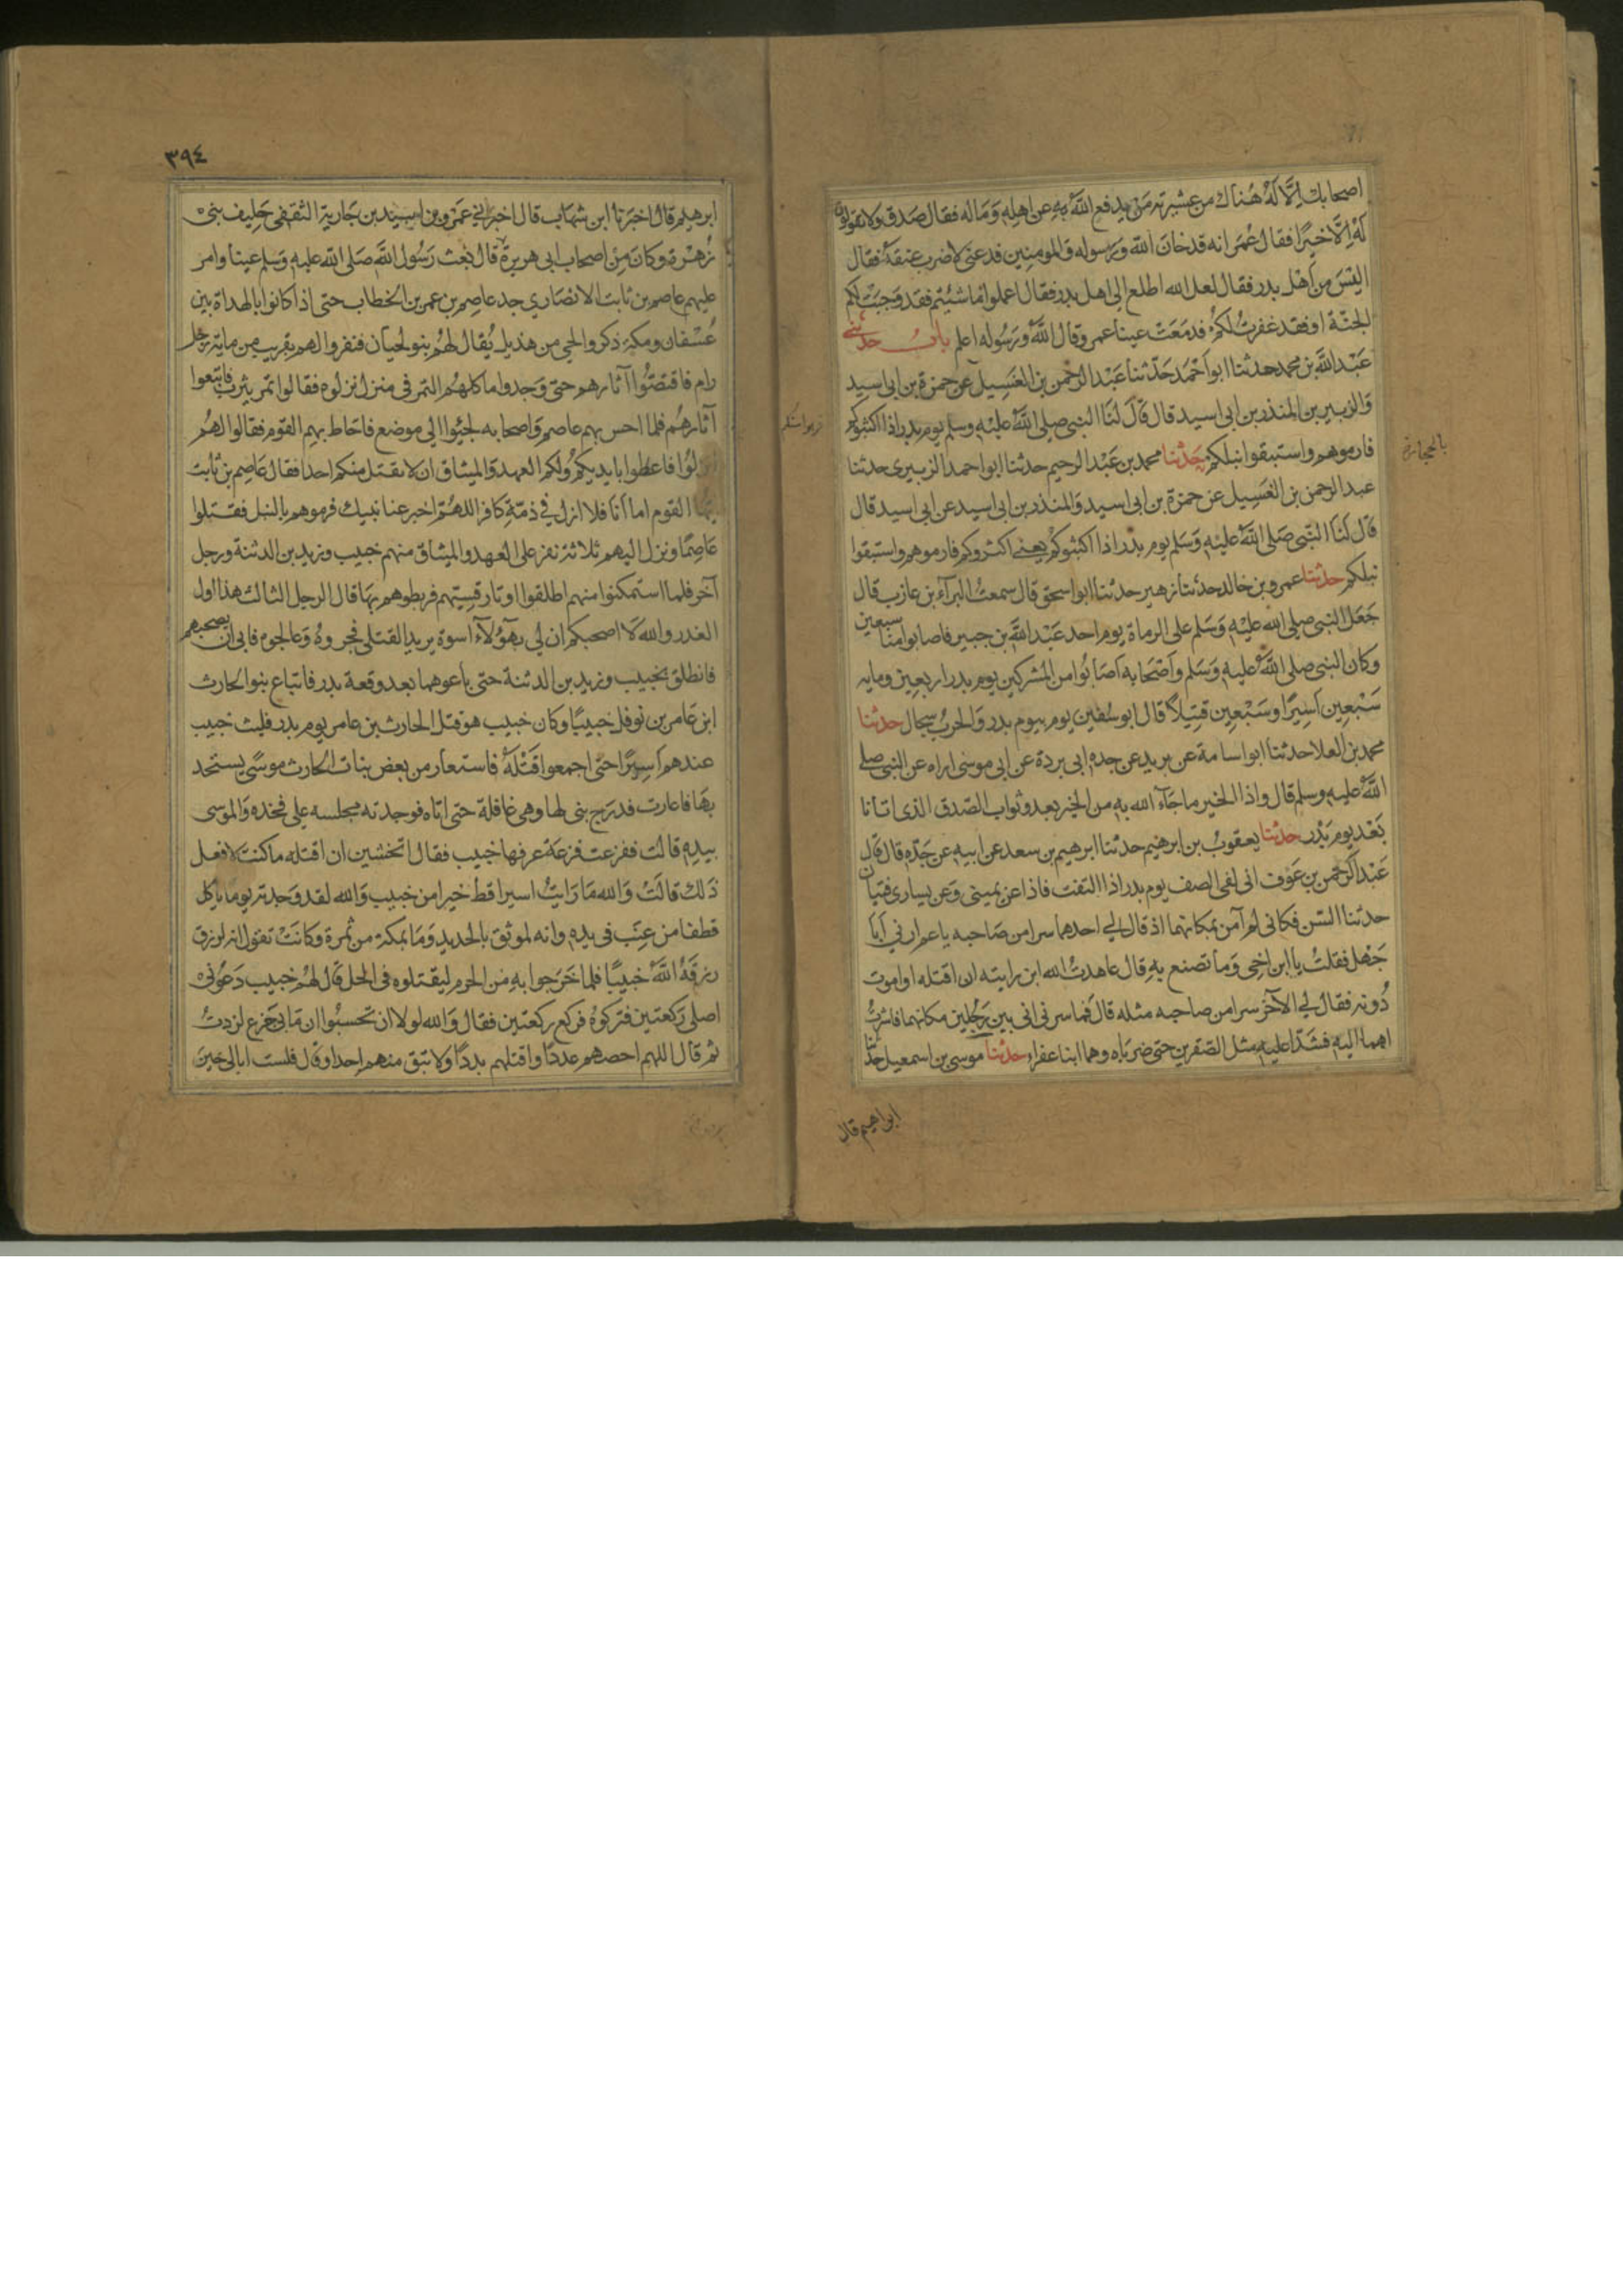 اصحابك الا له هناك من عشيرته من يدفع الله به عن اهله وماله فقال صدق ولا تقولوا
له الا خيرا فقال عمر انه قد خان الله ورسوله والمومنين فدعني لاضرب عنقه فقال
اليس من اهل بدر فقال لعل الله اطلع الى اهل بدر فقال اعملوا ما شئتم فقد وجبت لكم
الجنة او فقد غفرت لكم فدمعت عينا عمر وقال الله ورسوله اعلم باب حدثني
عبد الله بن محمد حدثنا ابو احمد حدثنا عبد الرحمن بن الغسيل عن حمزة بن ابي اسيد
والزبير بن المنذر بن ابي اسيد قال قال لنا النبي صلى الله عليه وسلم يوم بدر اذا اكثبوكم
فارموهم واستبقوا نبلكم حدثنا محمد بن عبد الرحيم حدثنا ابو احمد الزبيري حدثنا
بالحجارة
عبد الرحمن بن الغسيل عن حمزة بن ابي اسيد والمنذر بن ابي اسيد عن ابي اسيد قال
قال لنا النبي صلى الله عليه وسلم يوم بدر اذا اكثبوكم يعني اكثروكم فارموهم واستبقوا
نبلكم حدثنا عمرو بن خالد حدثنا زهير حدثنا ابو اسحق قال سمعت البرآء بن عازب قال
جعل النبي صلى الله عليه وسلم على الرماة يوم احد عبد الله بن جبير فاصابوا منا سبعين
وكان النبي صلى الله عليه وسلم واصحابه اصابوا من المشركين يوم بدر اربعين ومايه
سبعين اسيرا وسبعين قتيلا قال ابو سفين يوم بيوم بدر والحرب سجال حدثنا
محمد بن العلا حدثنا ابو اسامة عن بريد عن جده ابي بردة عن ابي موسى اراه عن النبي صلى
الله عليه وسلم قال واذا الخير ما جآء الله به من الخير بعد وثواب الصدق الذي اتانا
بعد يوم بدر حدثنا يعقوب بن ابرهيم حدثنا ابرهيم بن سعد عن ابيه عن جده قال قال
عبد الرحمن بن عوف اني لفي الصف يوم بدر اذا التفت فاذا عن يميني وعن يساري فتيان
حدثنا السن فكاني لم آمن بمكانهما اذ قال لي احدهما سرا من صاحبه يا عم ارني ابا
جهل فقلت يا ابن اخي وما تصنع به قال عاهدت الله ان رايته ان اقتله او اموت
دونه فقال لي الآخر سرا من صاحبه مثله قال فما سرني اني بين رجلين مكانهما فاشرت
لهما اليه فشدا عليه مثل الصقرين حتى ضرباه وهما ابنا عفراء حدثنا موسى بن اسمعيل حدثنا
ابراهيم قال
٣٩٤
ابرهيم قال اخبرنا ابن شهاب قال اخبرني عمرو بن اسيد بن جارية الثقفي حليف بني
زهرة وكان من اصحاب ابي هريرة قال بعث رسول الله صلى الله عليه وسلم عينا وامر
عليهم عاصم بن ثابت الانصاري جد عاصم بن عمر بن الخطاب حتى اذا كانوا بالهداة بين
عسفان ومكة ذكروا لحي من هذيل يقال لهم بنو لحيان فنفروا لهم بقريب من ماية رجل
رام فاقتصوا آثارهم حتى وجدوا ماكلهم التمر في منزل نزلوه فقالوا تمر يثرب فاتبعوا
آثارهم فلما احس بهم عاصم واصحابه لجئوا الى موضع فاحاط بهم القوم فقالوا لهم
انزلوا فاعطوا بايديكم ولكم العهد والميثاق ان لا نقتل منكم احدا فقال عاصم بن ثابت
ايها القوم اما انا فلا انزل في ذمة كافر اللهم اخبر عنا نبيك فرموهم بالنبل فقتلوا
عاصما ونزل اليهم ثلاثة نفر على العهد والميثاق منهم خبيب وزيد بن الدثنة ورجل
آخر فلما استمكنوا منهم اطلقوا اوتار قسيتهم فربطوهم بها قال الرجل الثالث هذا اول
الغدر والله لا اصحبكم ان لي بهؤلآء اسوة يريد القتلى فجروه وعالجوه فابى ان يصحبهم
فانطلق بخبيب وزيد بن الدثنة حتى باعوهما بعد وقعة بدر فابتاع بنو الحارث
ابن عامر بن نوفل خبيبا وكان خبيب هو قتل الحارث بن عامر يوم بدر فلبث خبيب
عندهم اسيرا حتى اجمعوا قتله فاستعار من بعض بنات الحارث موسى يستحد
بها فاعارت فدرج بني لها وهي غافلة حتى اتاه فوجدته مجلسه على فخذه والموسى
بيده قالت ففزعت فزعة عرفها خبيب فقال اتخشين ان اقتله ما كنت لافعل
ذلك قالت والله ما رايت اسيرا قط خيرا من خبيب والله لقد وجدته يوما ياكل
قطفا من عنب في يده وانه لموثق بالحديد وما بمكة من ثمرة وكانت تقول انه لرزق
رزقه الله خبيبا فلما خرجوا به من الحرم ليقتلوه في الحل قال لهم خبيب دعوني
اصلي ركعتين فتركوه فركع ركعتين فقال والله لولا ان تحسبوا ان ما بي جزع لزدت
ثم قال اللهم احصهم عددا واقتلهم بددا ولا تبق منهم احدا وقال فلست ابالي حين